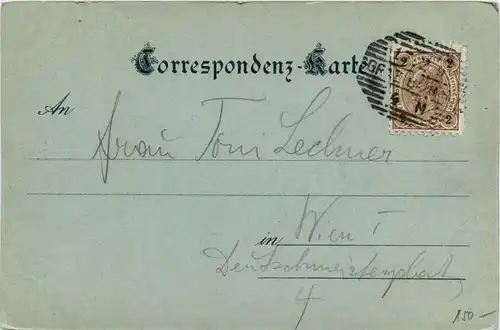 Correspondenz-Karte
2 2
GR
An
Frau Toni Lechner
2 2
N
in Wien I
Deutschmeisterplatz
4
150-